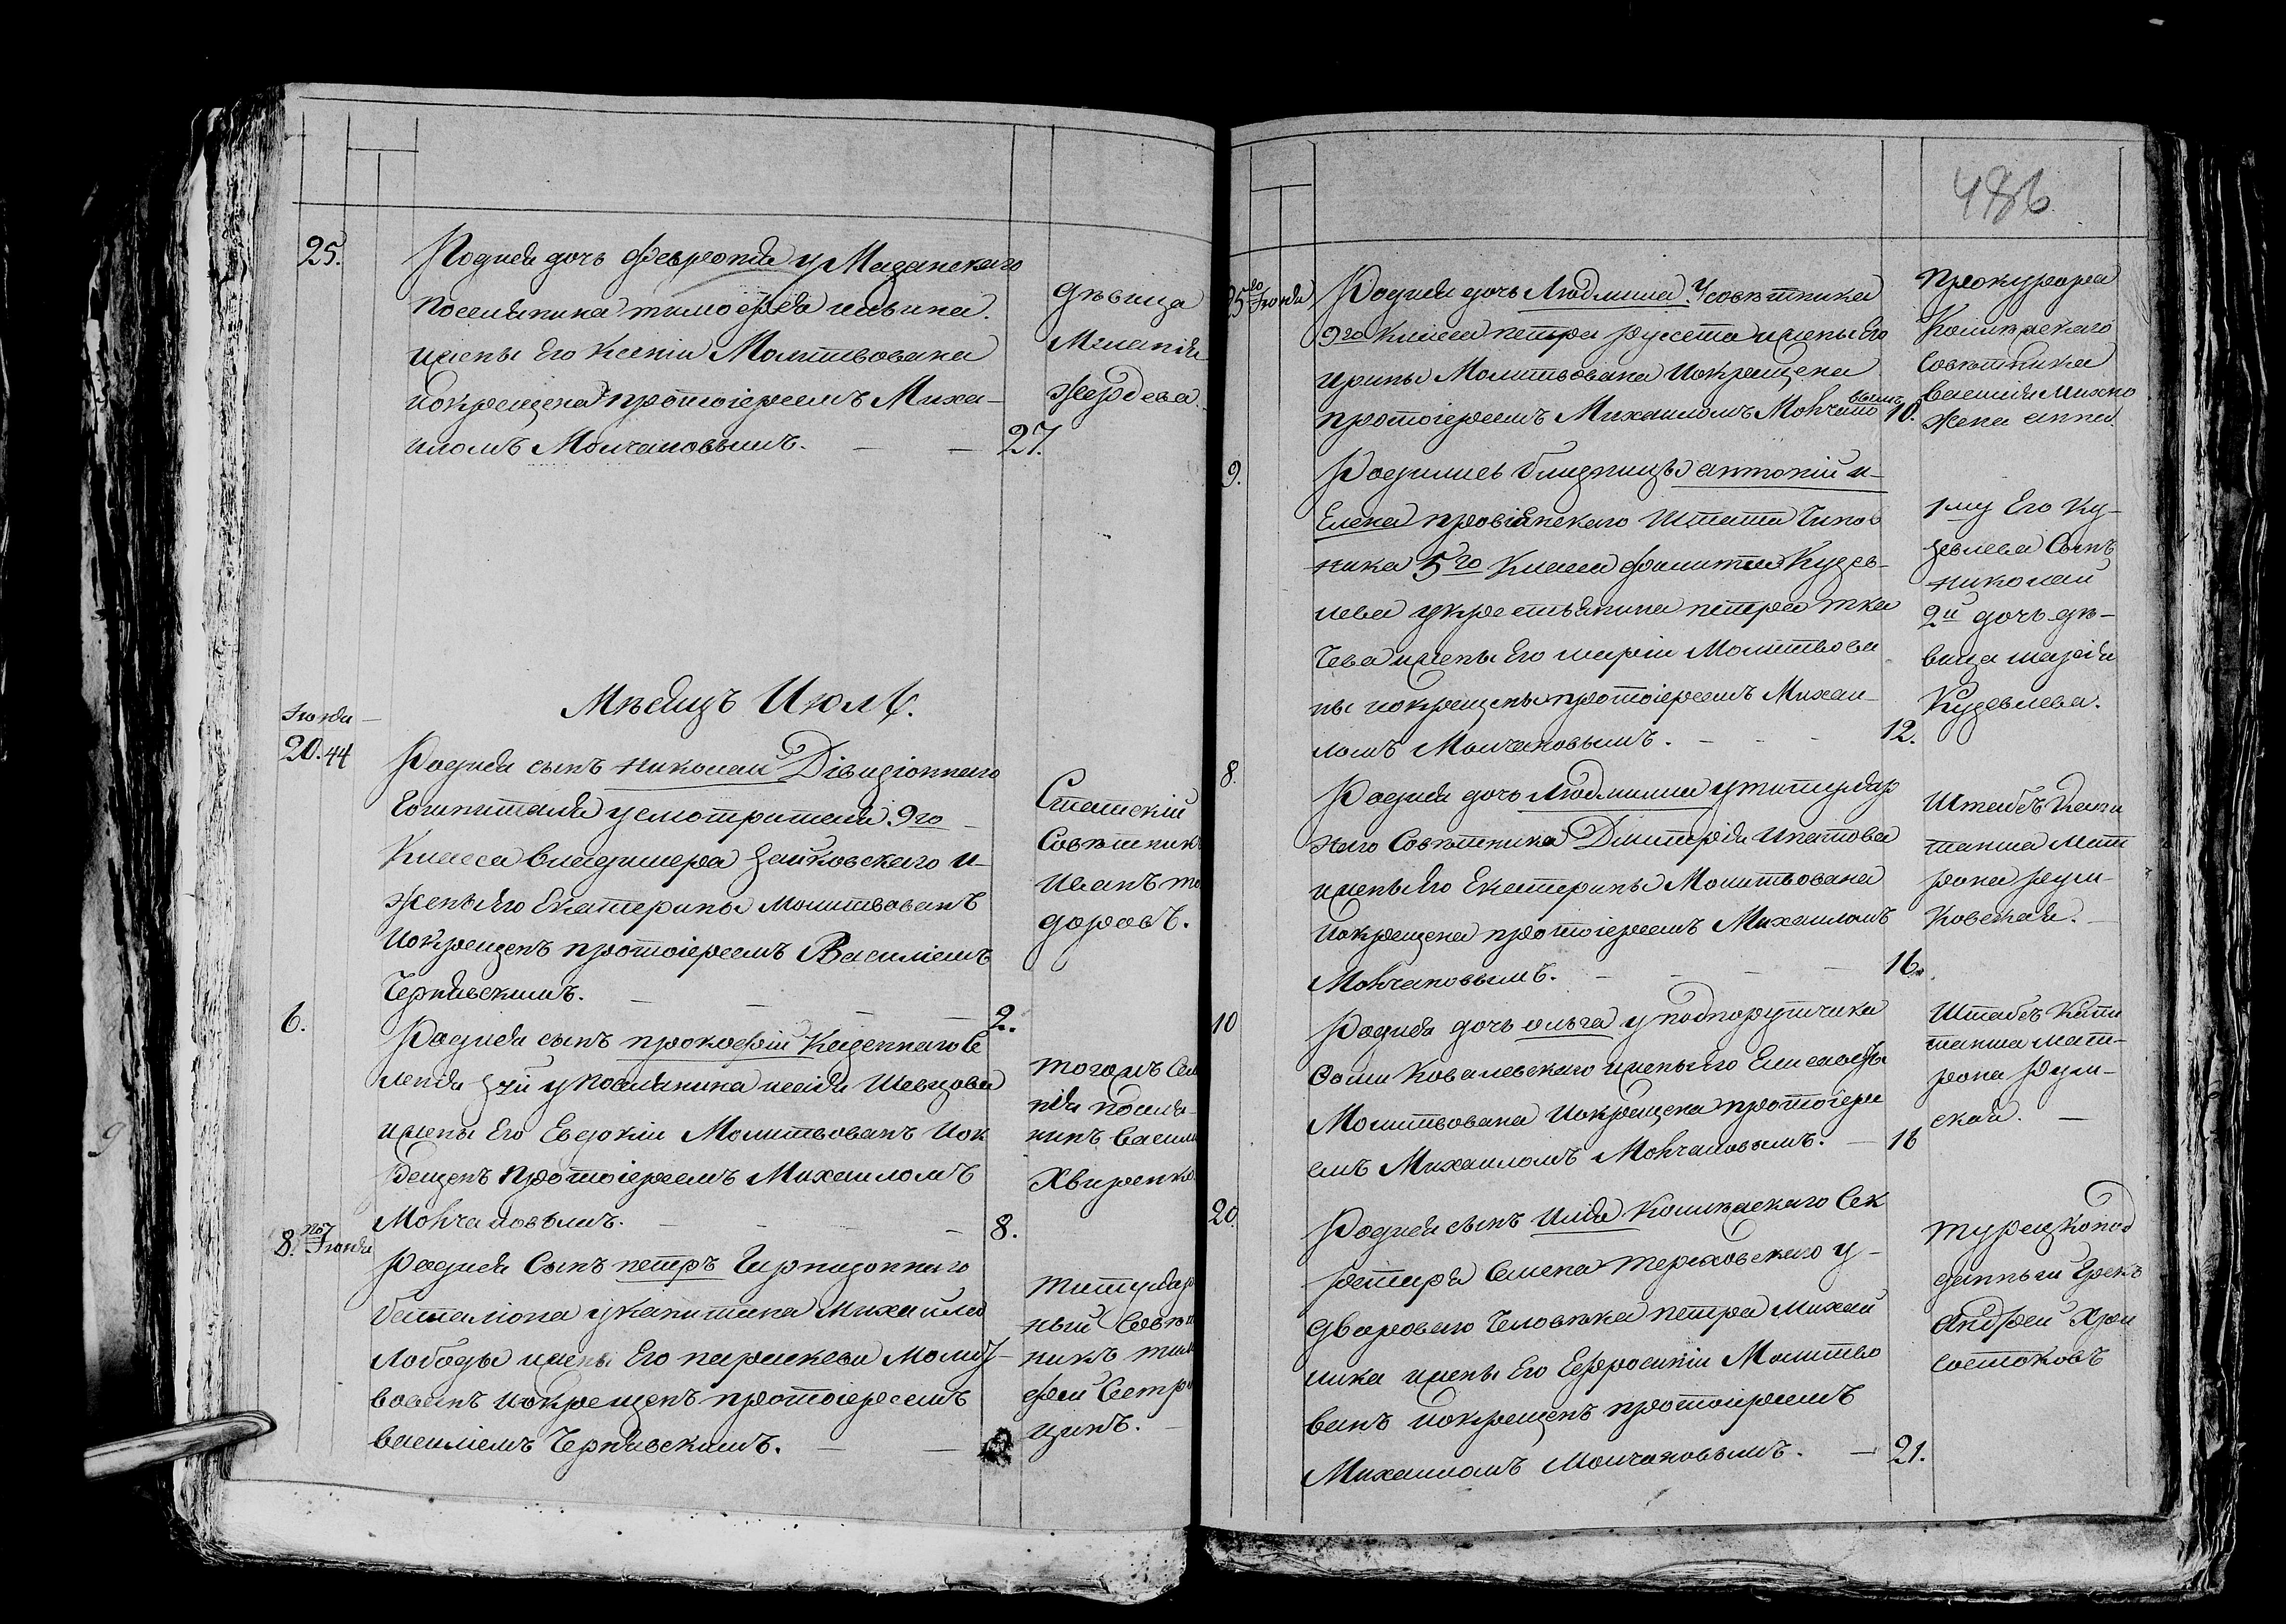 25.
Родися дочь Феврония у Мазанскаго
поселянина тимофея ильина
ижены Его Ксении Молитвована
иокрещена протоіереемъ Миха-
иломъ Молчановымъ. — — 27.
дѣвица
Меланія
Жердева
Мѣсяцъ Июль.
Іюня
20. 44
Родися сынъ николай Дівизіоннаго
Гошпиталя усмотрителя 9го
Класса владимера Зайковскаго и
жены Его Екатерины молитвованъ
иокрещенъ протоіереемъ Василіемъ
Чернявскимъ. — — 2.
Статскій
Совѣтник
Иванъ то
доровъ.
6.
Родися сынъ прокофій Казеннаго Се
ленія Зуй у поселянина исаія Шевцова
ижены Его Евдокіи Молитвованъ иок
рещенъ протоіереемъ Михаиломъ
Молчановымъ. — — 8.
тогожъ Сел
нія поселя-
нинъ Васили
Хвиренко
8. Іюня
Родися Сынъ петръ Гарнизоннаго
баталіона укапитана Михайла
Лободы ижены Его параскеви Молит
вованъ иокрещенъ протоіереемъ
василіемъ Чернявскимъ. — —
титуляр
ный Совѣт
никъ тим
фей Сетри
цинъ. —
486
25го Іюня
Родися дочь Людмила Усовѣтника
9го Класса петра русета ижены Его
ирины Молитвована иокрещена
протоіереемъ Михаиломъ Молчано
вымъ 10.
Прокурора
Коллежскаго
Совѣтника
Василія Михно
жена анна
9.
Родились близницы антоній и-
Елена провіянскаго Штата Чинов
ника 5го Класса Фомитча Кузов-
лева укрестьянина петра тка
чева ижены Его маріи Молитвова
ны иокрещены протоіереемъ Михаи-
ломъ Молчановымъ. — — 12.
1му Его Ку-
зовлева Сынъ
николай
2й дочь дѣ-
вица марія
Кузовлева.
8.
Родися дочь Людмила утитуляр
наго Совѣтника Димитрія Ипатова
ижены Его Екатерины Молитвована
иокрещена протоіереемъ Михаиломъ
Молчановымъ. — — 16.
Штабъ Капи
танша Мат
рона рум-
ковская.
10
Родися дочь ольга уподпорутчика
Фомы Ковалевскаго ижены Его Елисаветы
Молитвована иокрещена протоіере
емъ Михаиломъ Молчановымъ. — 16
Штабъ Капи
танша мат-
рона рум-
ская. —
20.
Родися сынъ Илія Коллежскаго Сек
ретаря Семена терлковскаго у-
двороваго Человѣка петра Михай
лика ижены Его Ефросиніи Молитво
ванъ иокрещенъ протоіереемъ
Михаиломъ молчановымъ. — 21.
турецкопод
данный Грекъ
Андрей Хри
состоковъ